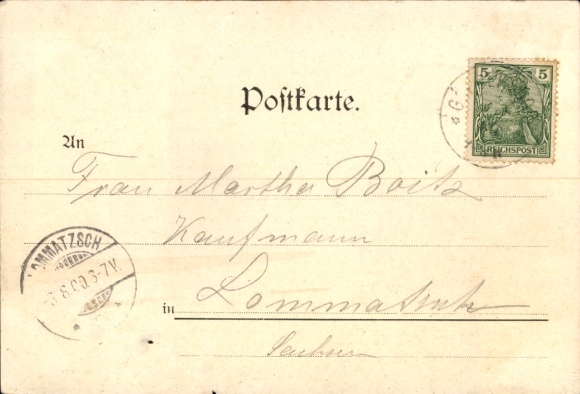 Postkarte.
5 5
REICHSPOST
An
Frau Martha Boitz
Kaufmann
in Lommatzsch
Sachsen
LOMMATZSCH
-3.8.00.6-7V.